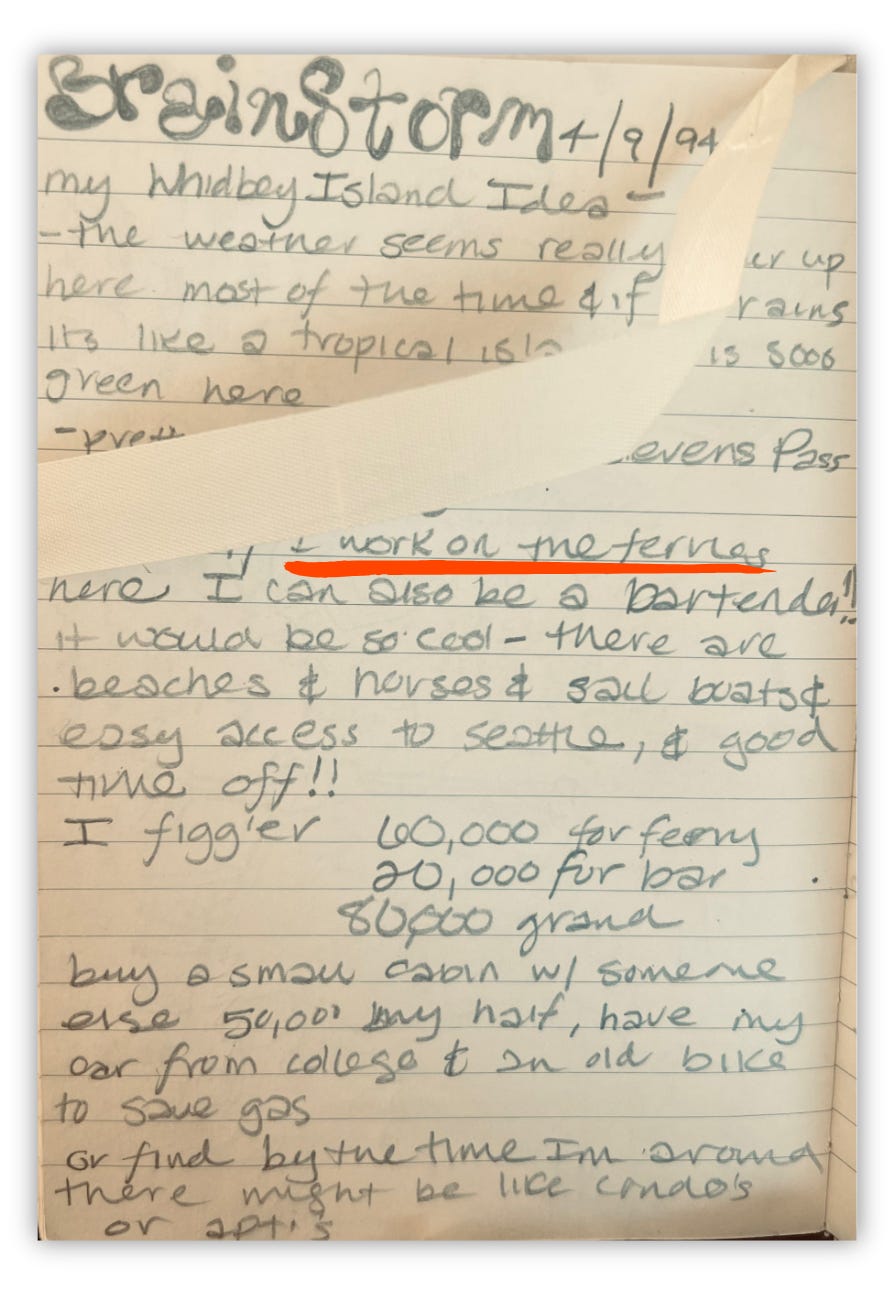 BrainStorm 4/9/94
my Whidbey Island Idea -
- the weather seems really up
here most of the time & if rains
its like a tropical is sooo
green here
- Pass
I work on the ferries
here I can also be a bartender!!
it would be so cool - there are
beaches & horses & sail boats &
easy access to seattle, & good
time off!!
I figg'er 60,000 for ferry
20,000 for bar
80,000 grand
buy a small cabin w/ someone
else 50,000 my half, have my
car from college & an old bike
to save gas
or find by the time Im around
there might be like condo's
or apt's